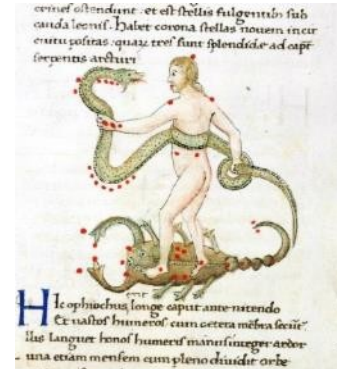 crines ostendunt. et est stellis fulgentib sub
cauda leonis. Habet corona stellas novem in cir
cuitu positas. quaꝝ tres sunt splendidae ad capt
serpentis arcturi
Hic ophiochus longe caput ante nitendo
Et vastos humeros cum cetera mēbra secunt
Illis languet honos humeris manus integer ardor
una etiam mensem cum pleno diuidit orbe